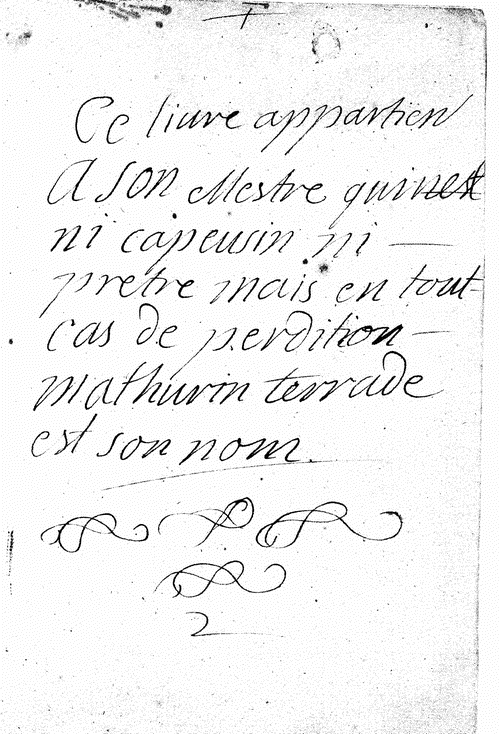 Ce liure appartien
A son Mestre qui nest
ni capeusin ni —
pretre mais en tout
cas de perdition —
mathurin terrade
est son nom.
2